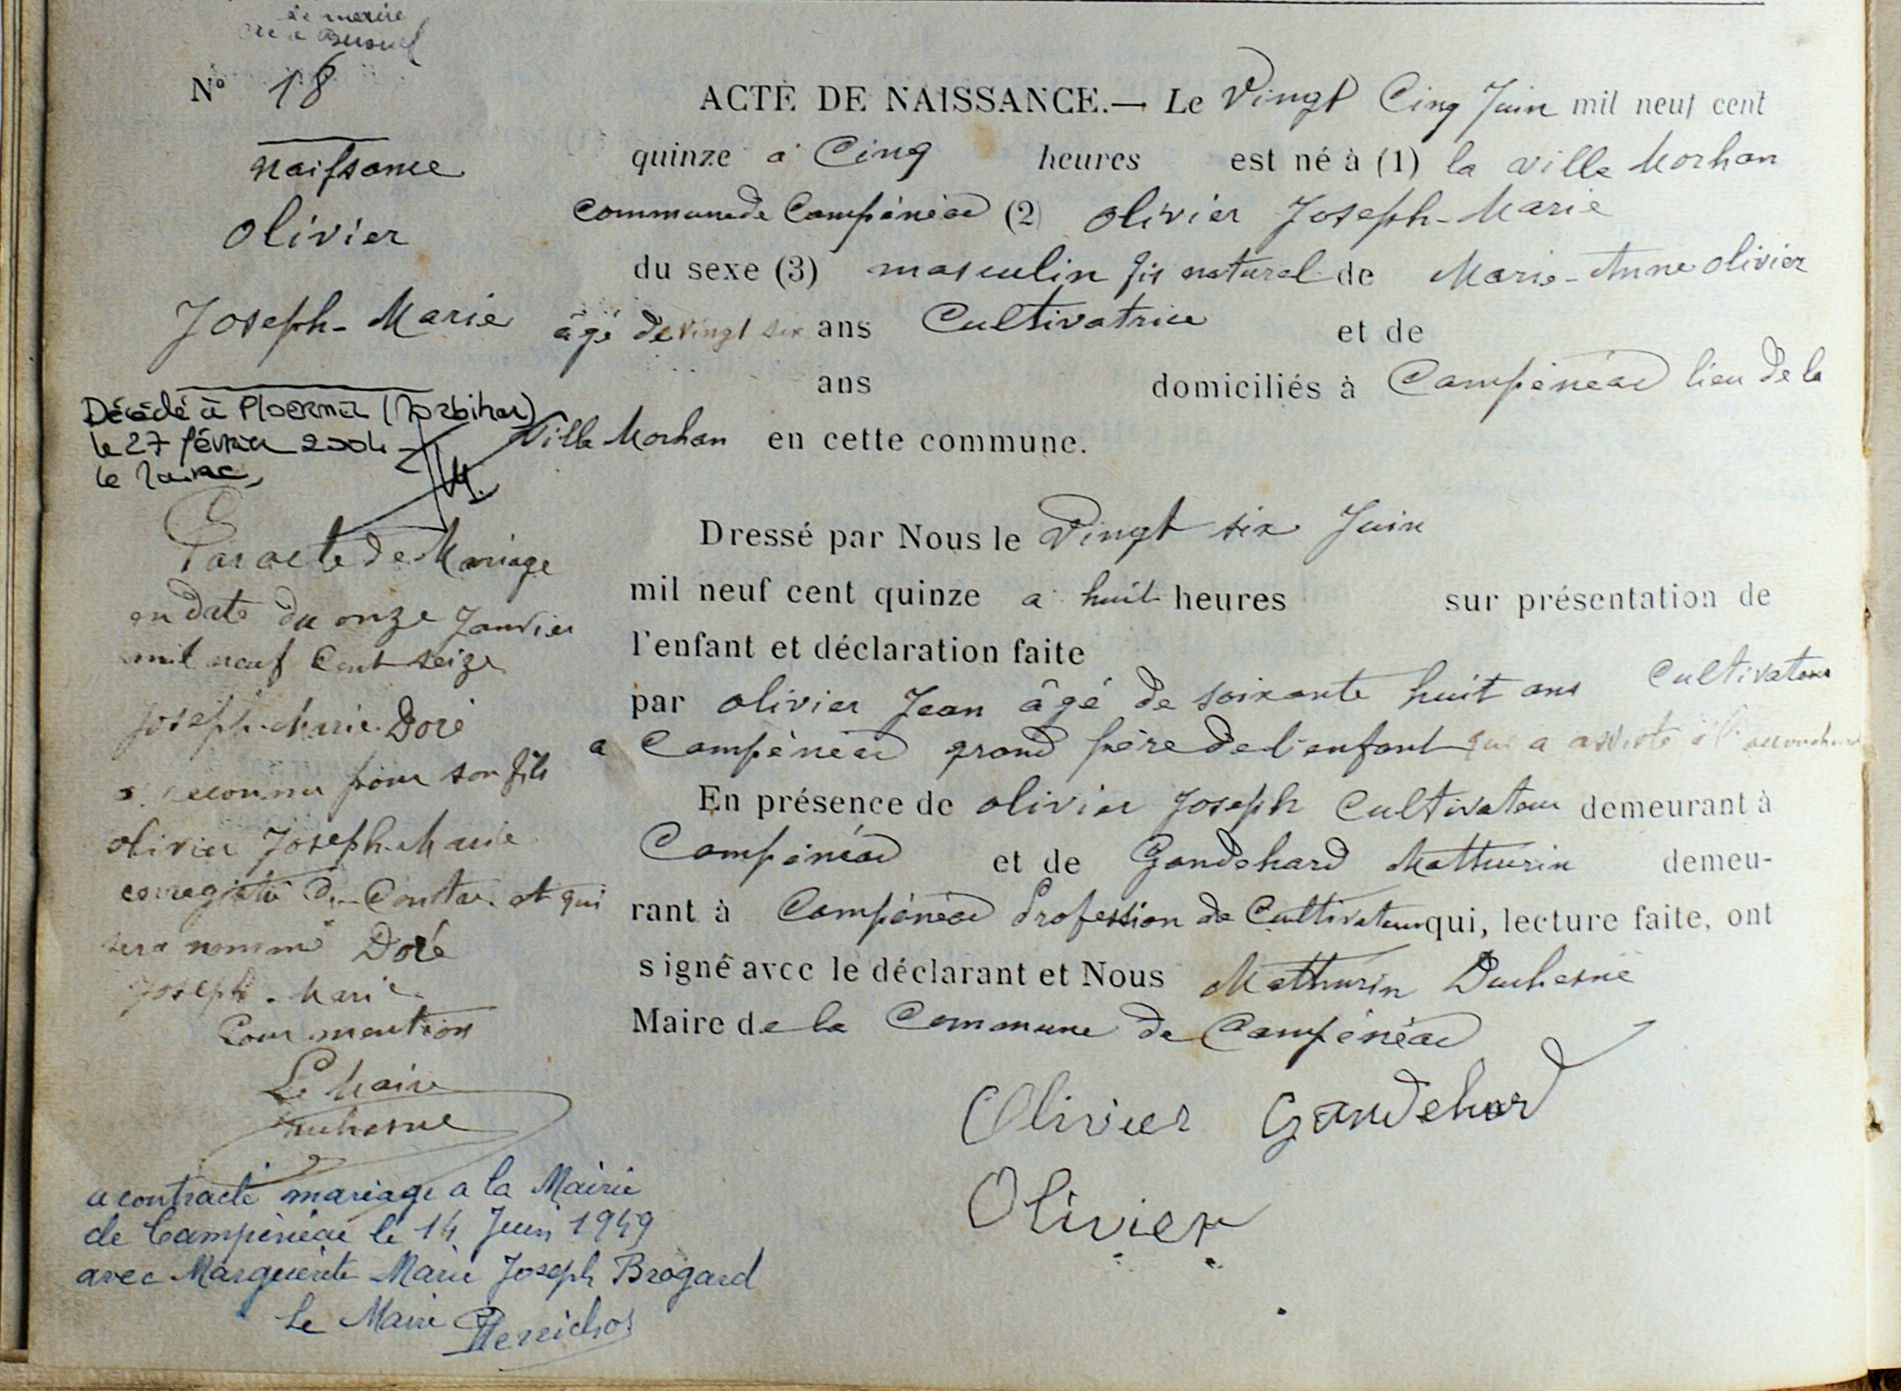 de mairie
N° 18
naissance
Olivier
Joseph-Marie
Décédé à PLOERMEL (Morbihan)
le 27 février 2004
le Maire,
Par acte de Mariage
en date du onze Janvier
mil neuf Cent seize
Joseph-Marie Doré
a reconnu pour son fils
olivier Joseph-Marie
enregistré Ci-Contre et qui
sera nommé Doré
Joseph-Marie
Pour mention
Le Maire
Duchesne
a contracté mariage a la Mairie
de Campénéac le 14 Juin 1949
avec Marguerite Marie Joseph Brogard
Le Maire
ACTE DE NAISSANCE.— Le Vingt Cinq Juin mil neuf cent
quinze a Cinq heures est né à (1) la ville Morhan
commune de Campénéac (2) Olivier Joseph-Marie
du sexe (3) masculin fis naturel de Marie-Anne Olivier
âgé de vingt six ans Cultivatrice et de
ans domiciliés à Campénéac lieu de la
Ville Morhan en cette commune.
Dressé par Nous le Vingt six Juin
mil neuf cent quinze a huit heures sur présentation de
l'enfant et déclaration faite
par olivier Jean âgé de soixante huit ans Cultivateur
a Campénéac grand père de l'enfant qui a assisté à l'accouchement
En présence de olivier Joseph Cultivateur demeurant à
Campénéac et de Gandehard Mathurin demeu-
rant à Campénéac Profession de Cultivateur qui, lecture faite, ont
signé avec le déclarant et Nous Mathurin Duchesne
Maire de la Commune de Campénéac
Olivier Gandehard
Olivier